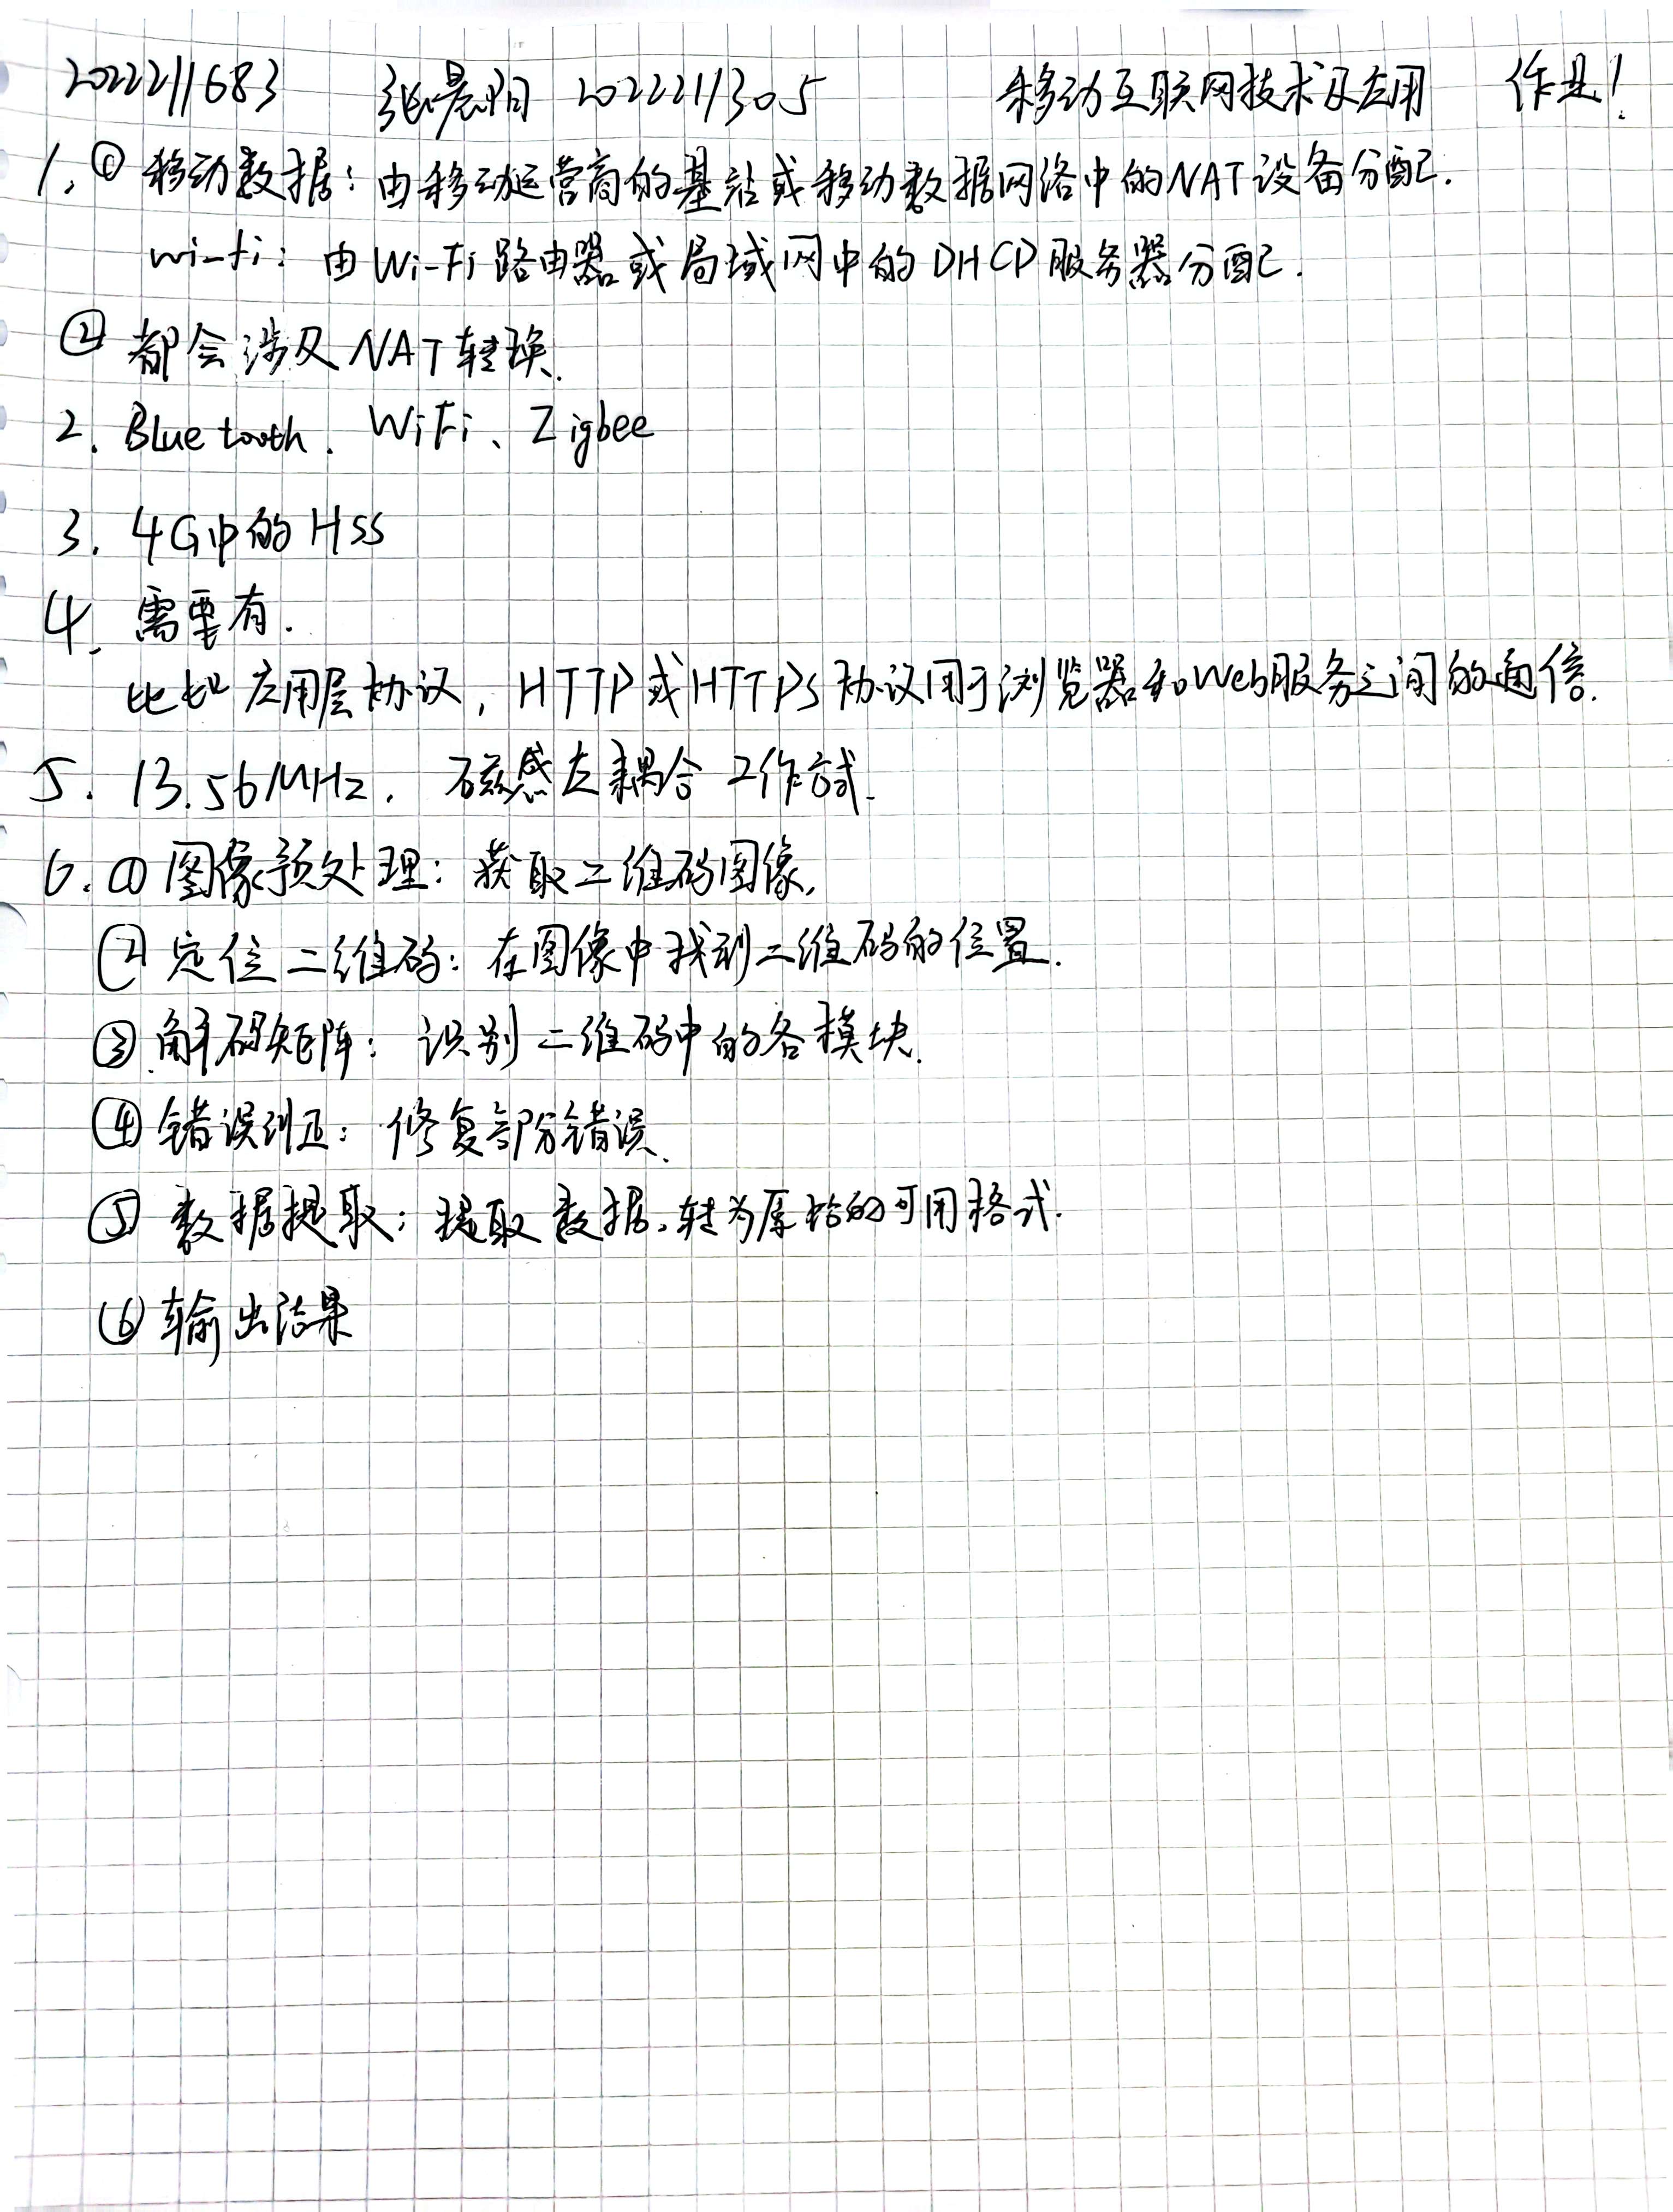 2022211683 张晨阳 2022211305 移动互联网技术及应用 作业1
1. ① 移动数据：由移动运营商的基站或移动数据网络中的NAT设备分配.
wi-fi：由Wi-Fi路由器或局域网中的DHCP服务器分配.
② 都会涉及NAT转换.
2. Bluetooth、WiFi、Zigbee
3. 4G中的HSS
4. 需要有.
比如应用层协议，HTTP或HTTPS协议用于浏览器和Web服务之间的通信.
5. 13.56MHz. 磁感应耦合工作方式.
6. ① 图像预处理：获取二维码图像.
② 定位二维码：在图像中找到二维码的位置.
③ 解码矩阵：识别二维码中的各模块.
④ 错误纠正：修复部分错误.
⑤ 数据提取：提取数据.转为原始的可用格式.
⑥ 输出结果